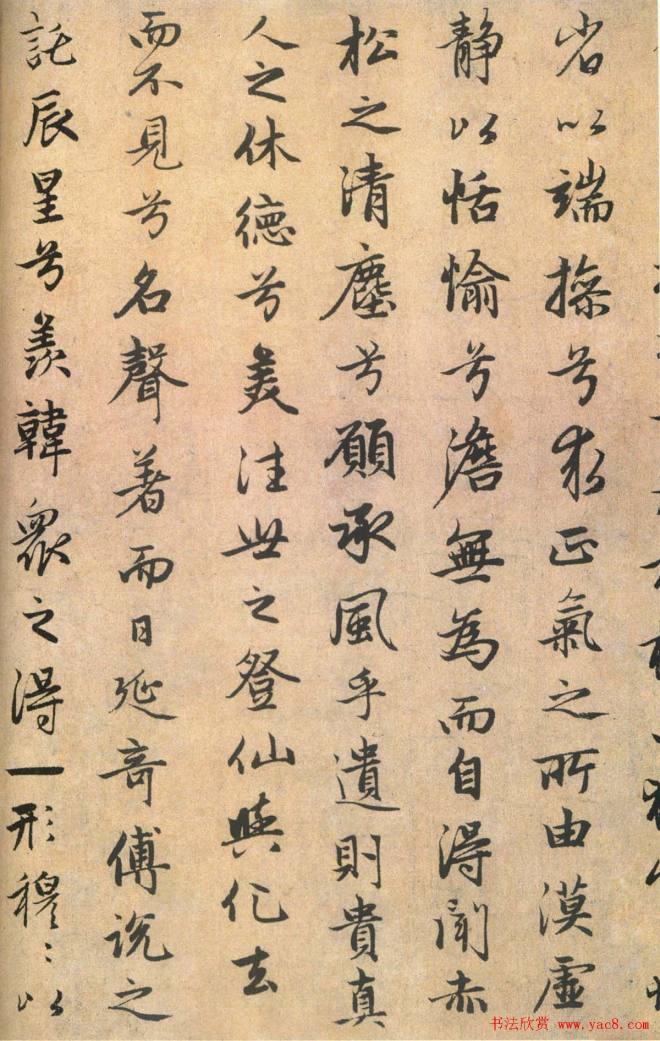 省以端操兮求正氣之所由漠虛
静以恬愉兮澹無為而自得聞赤
松之清塵兮願承風乎遺則貴真
人之休德兮美往世之登仙與化去
而不見兮名聲著而日延奇傅說之
託辰星兮羨韓衆之得一形穆〻以
书法欣赏 www.yac8.com